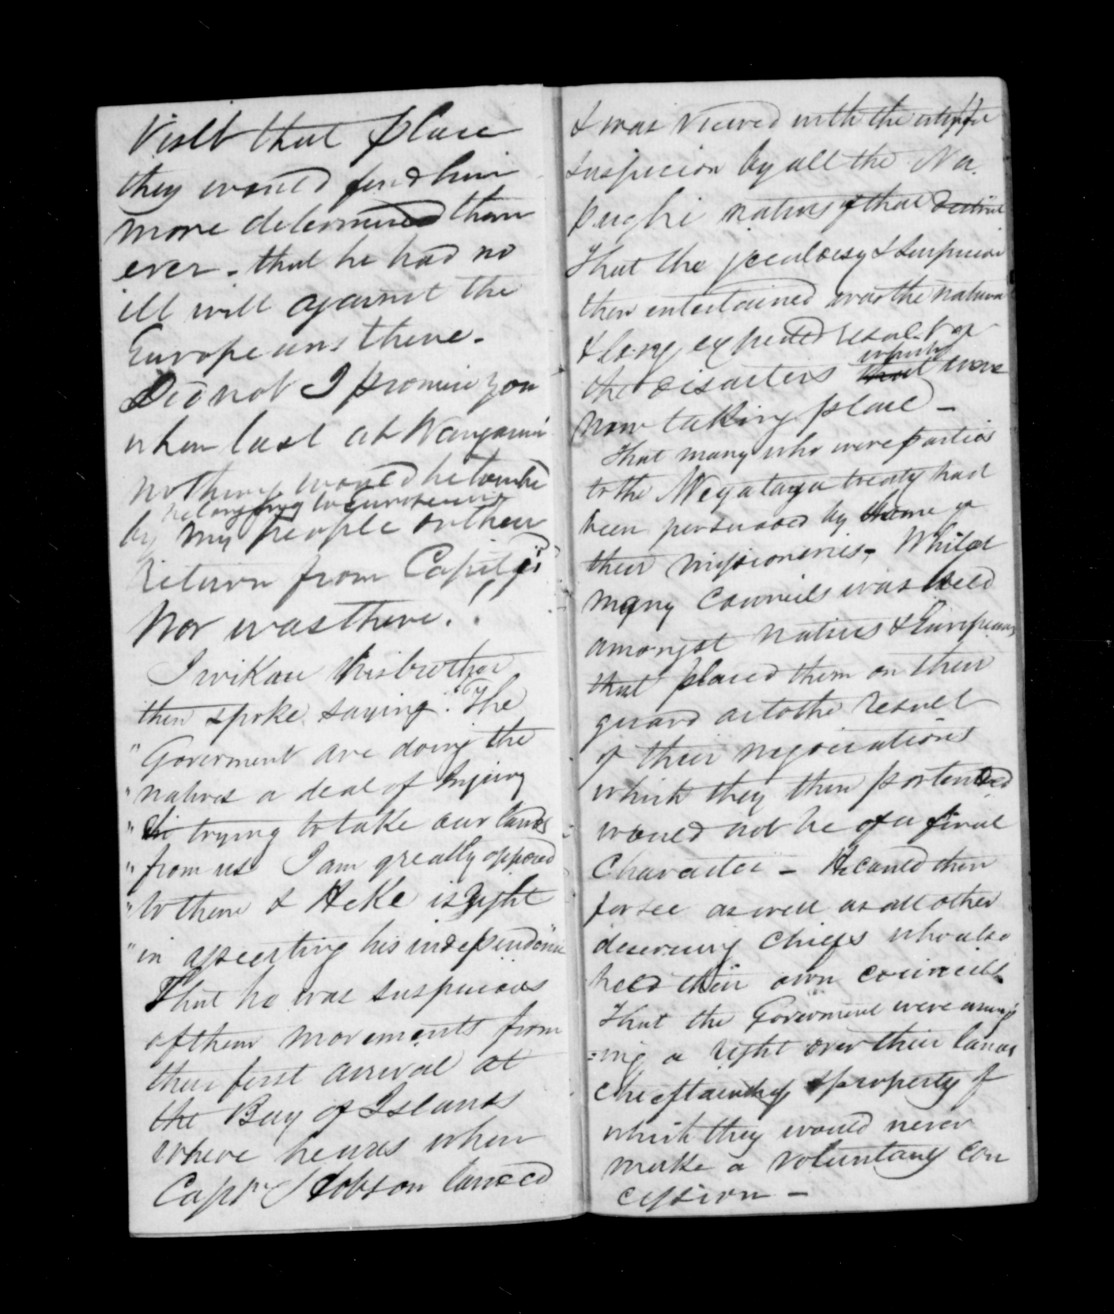 Visit that place
they would find him
more determined than
ever - that he had no
ill will against the
Europeans there.
Did not I promise you
when last at Wanganui
nothing would be touched
belonging to Europeans
by my people on their
return from
Nor was there.
Iwikau his brother
then spoke saying. "The
"Goverment are doing the
"natives a deal of Injury
"in trying to take our lands
"from us I am greatly opposed
"to them & HeKe is right
"in asserting his independence
That he was suspicious
of them movements from
their first arrival at
the Bay of Islands
where he was when
Captn Hobson landed
& was viewed with the utmost
suspicion by all the Na
pughi natives of that District
That the jealousy & suspicion
then entertained was the natural
& long expected result of
the disasters which were
now taking place -
That many who were parties
to the Wyatanga treaty had
been persuaded by some of
their missioneries - Whilst
many Councils was held
amongst natives & Europeans
that placed them on their
guard as to the result
of their negociations
which they then portended
would not be of a final
Character - He could then
forsee as well as all other
discerning Chiefs who also
held their own councils
That the Goverment were assum
=ing a right over their lands
Chieftainship & property of
which they would never
make a voluntary con
cession -